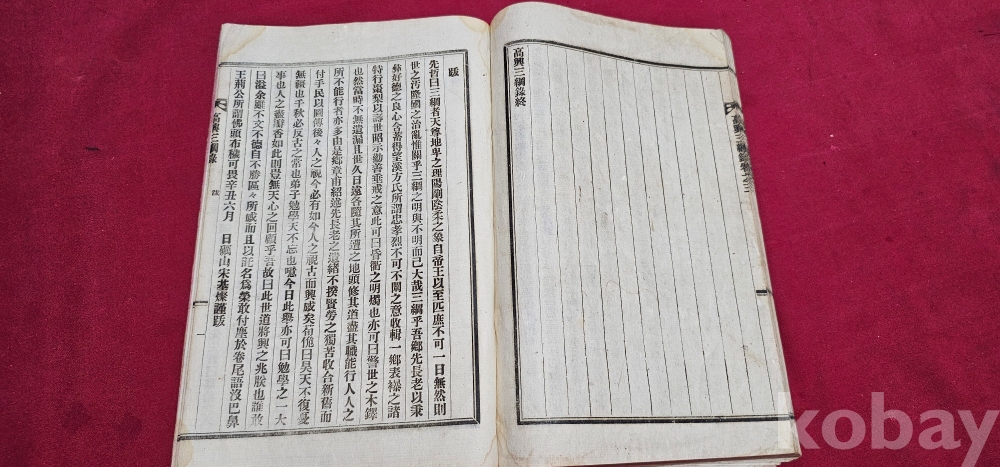 高興三綱錄終
跋
先哲曰三綱者天尊地卑之理陽剛陰柔之象自帝王以至匹庶不可一日無然則
世之汚隆國之治亂惟關乎三綱之明與不明而已大哉三綱乎吾鄉先長老以秉
彛好德之良心合蓄得望溪方氏所謂忠孝烈不可不闡之意收輯一鄉表襮之諸
特行棗梨以壽世昭示勸善垂戒之意此可曰昏衢之明燭也亦可曰警世之木鐸
也然當時不無遺漏且世久日遠各隨其所遭之地頭修其道盡其職能行人人之
所不能行者亦多由是鄉章甫紹述先長老之遺緖不撰賢勞之獨苦收合新舊而
付手民以圖傳後々人之視今必有如今人之視古而興感矣荀傀曰昊天不復憂
無疆也千秋必反古之常也弟子勉學天不忘也噫今日此擧亦可曰勉學之一大
事也人之壷彛香如此則豈無天心之回顧乎吾故曰此世道將興之兆朕也誰敢
曰溢余雖不文不德自不勝區々所感而且以託名爲榮敢付塵於卷尾語沒巴鼻
王荊公所謂佛頭布穢可畏辛丑六月　日礪山宋基燦謹跋
高興三綱錄
跋
一
kobay